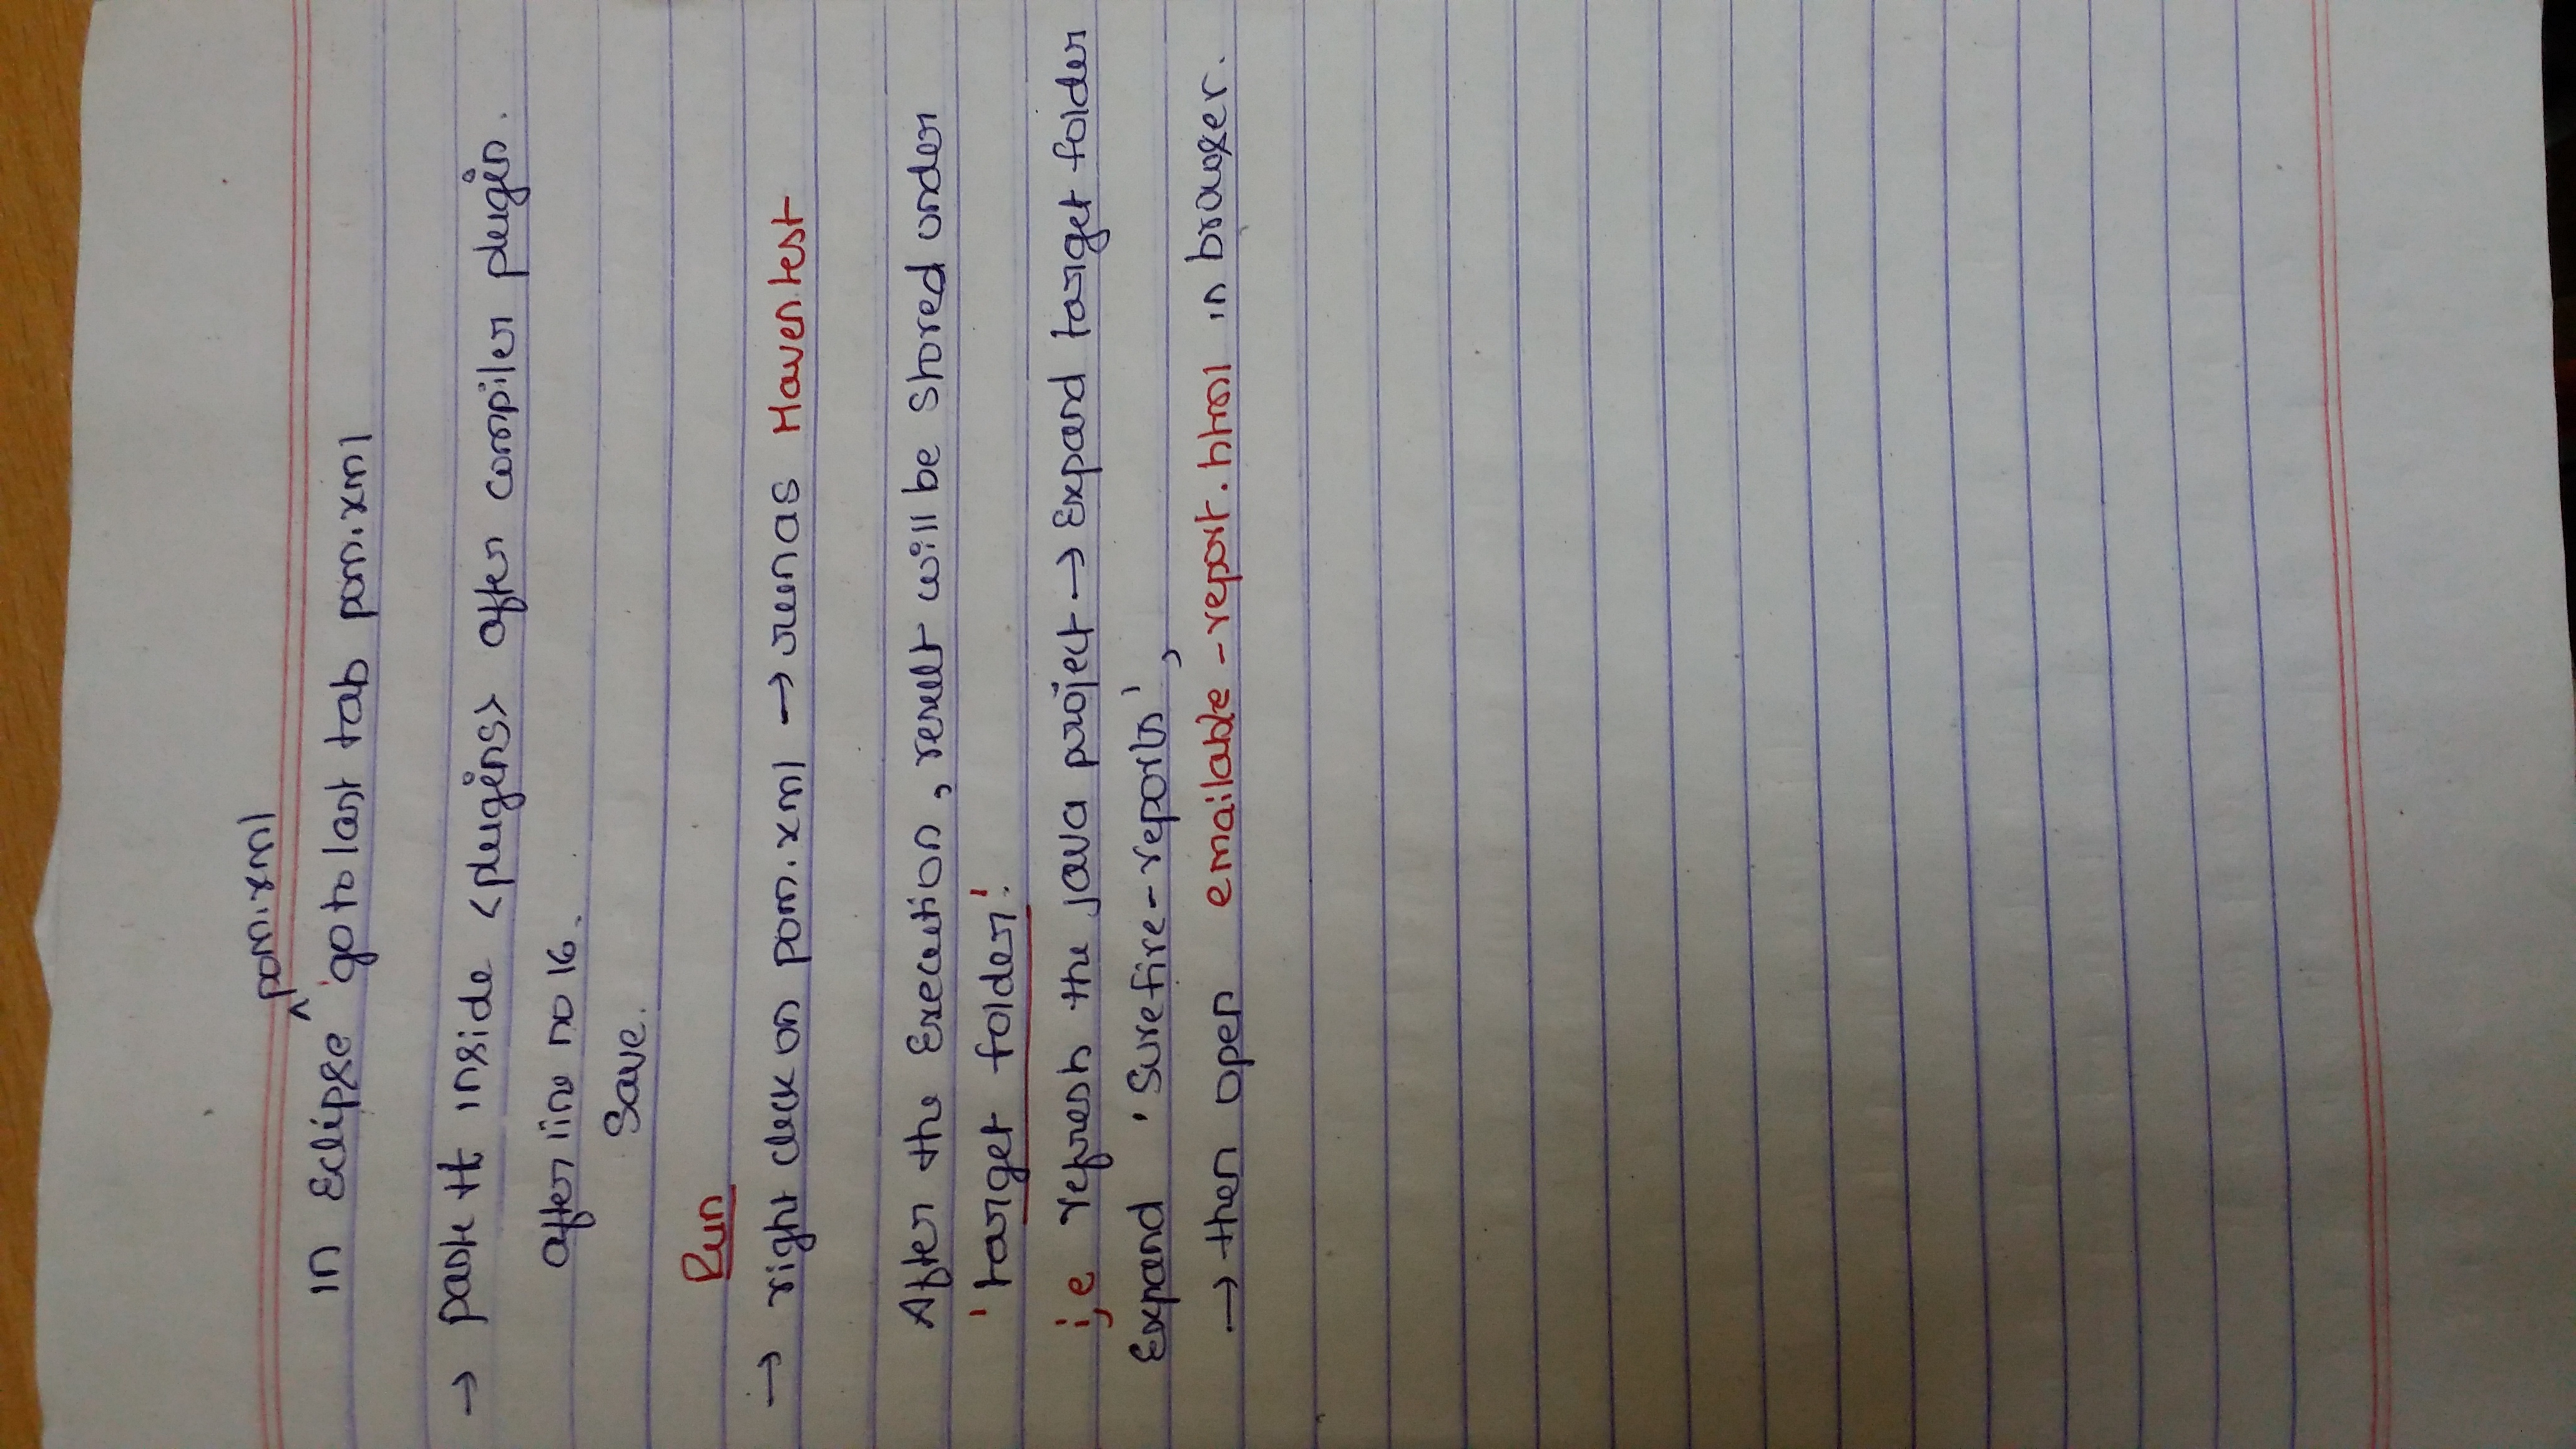 pom.xml
in Eclipse ^ go to last tab pom.xml
→ paste it inside <plugins> after compiler plugin.
after line no 16.
Save.
Run
→ right click on pom.xml → run as Maven test
After the Execution, result will be stored under
'target folder'.
i,e refresh the java project → Expand target folder
Expand 'Surefire-reports',
→ then open emailable-report.html in browser.